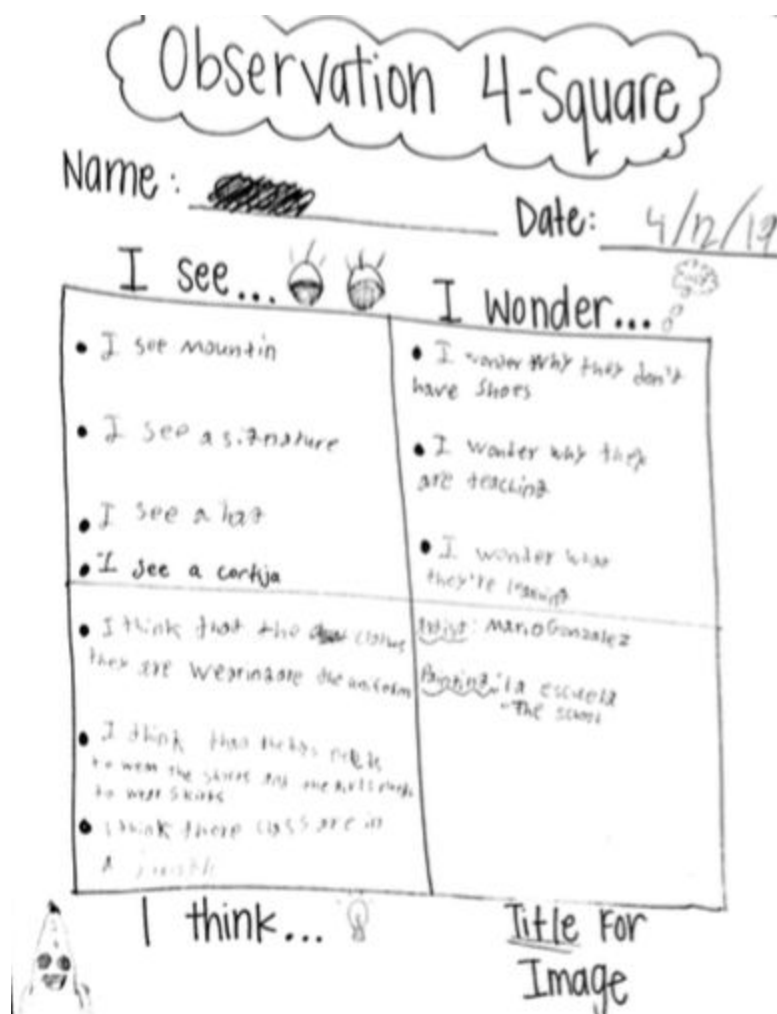 Observation 4-Square
Name:
Date: 4/12/19
I see...
I wonder...
• I see mountin
• I see a signature
• I see a hat
• I see a cortija
• I wonder why they don't
have shoes
• I wonder why they
are teaching
• I wonder what
they're learning
• I think that the clothes
they are wearing are the uniform
• I think that the boy needs
to wear the shirts and the girls needs
to wear skirts
• I think there class are in
a
Artist: Mario Gonzalez
Painting: La escuela
- The school
I think...
Title For
Image